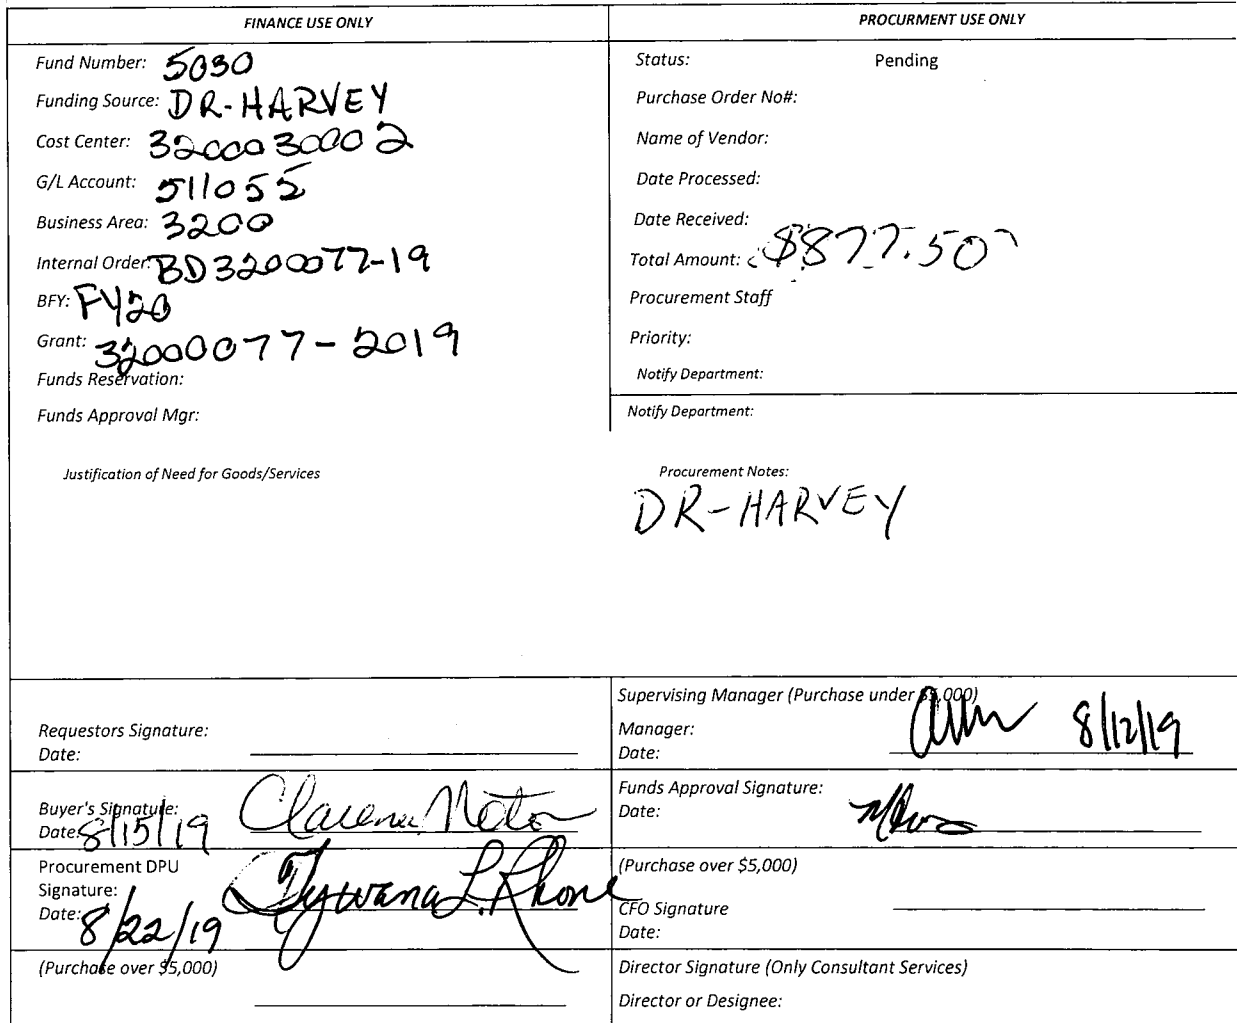 FINANCE USE ONLY
Fund Number: 5030
Funding Source: DR-HARVEY
Cost Center: 3200030002
G/L Account: 511055
Business Area: 3200
Internal Order: BD3200077-19
BFY: FY20
Grant: 32000077-2019
Funds Reservation:
Funds Approval Mgr:
Justification of Need for Goods/Services
PROCURMENT USE ONLY
Status: Pending
Purchase Order No#:
Name of Vendor:
Date Processed:
Date Received:
Total Amount: $877.50
Procurement Staff
Priority:
Notify Department:
Notify Department:
Procurement Notes:
DR-HARVEY
Requestors Signature:
Date:
Supervising Manager (Purchase under $5,000)
Manager:
Date: 8/12/19
Buyer's Signature:
Date: 8/15/19
Funds Approval Signature:
Date:
Procurement DPU
Signature: Tywana L. Rhone
Date: 8/22/19
(Purchase over $5,000)
(Purchase over $5,000)
CFO Signature
Date:
Director Signature (Only Consultant Services)
Director or Designee: